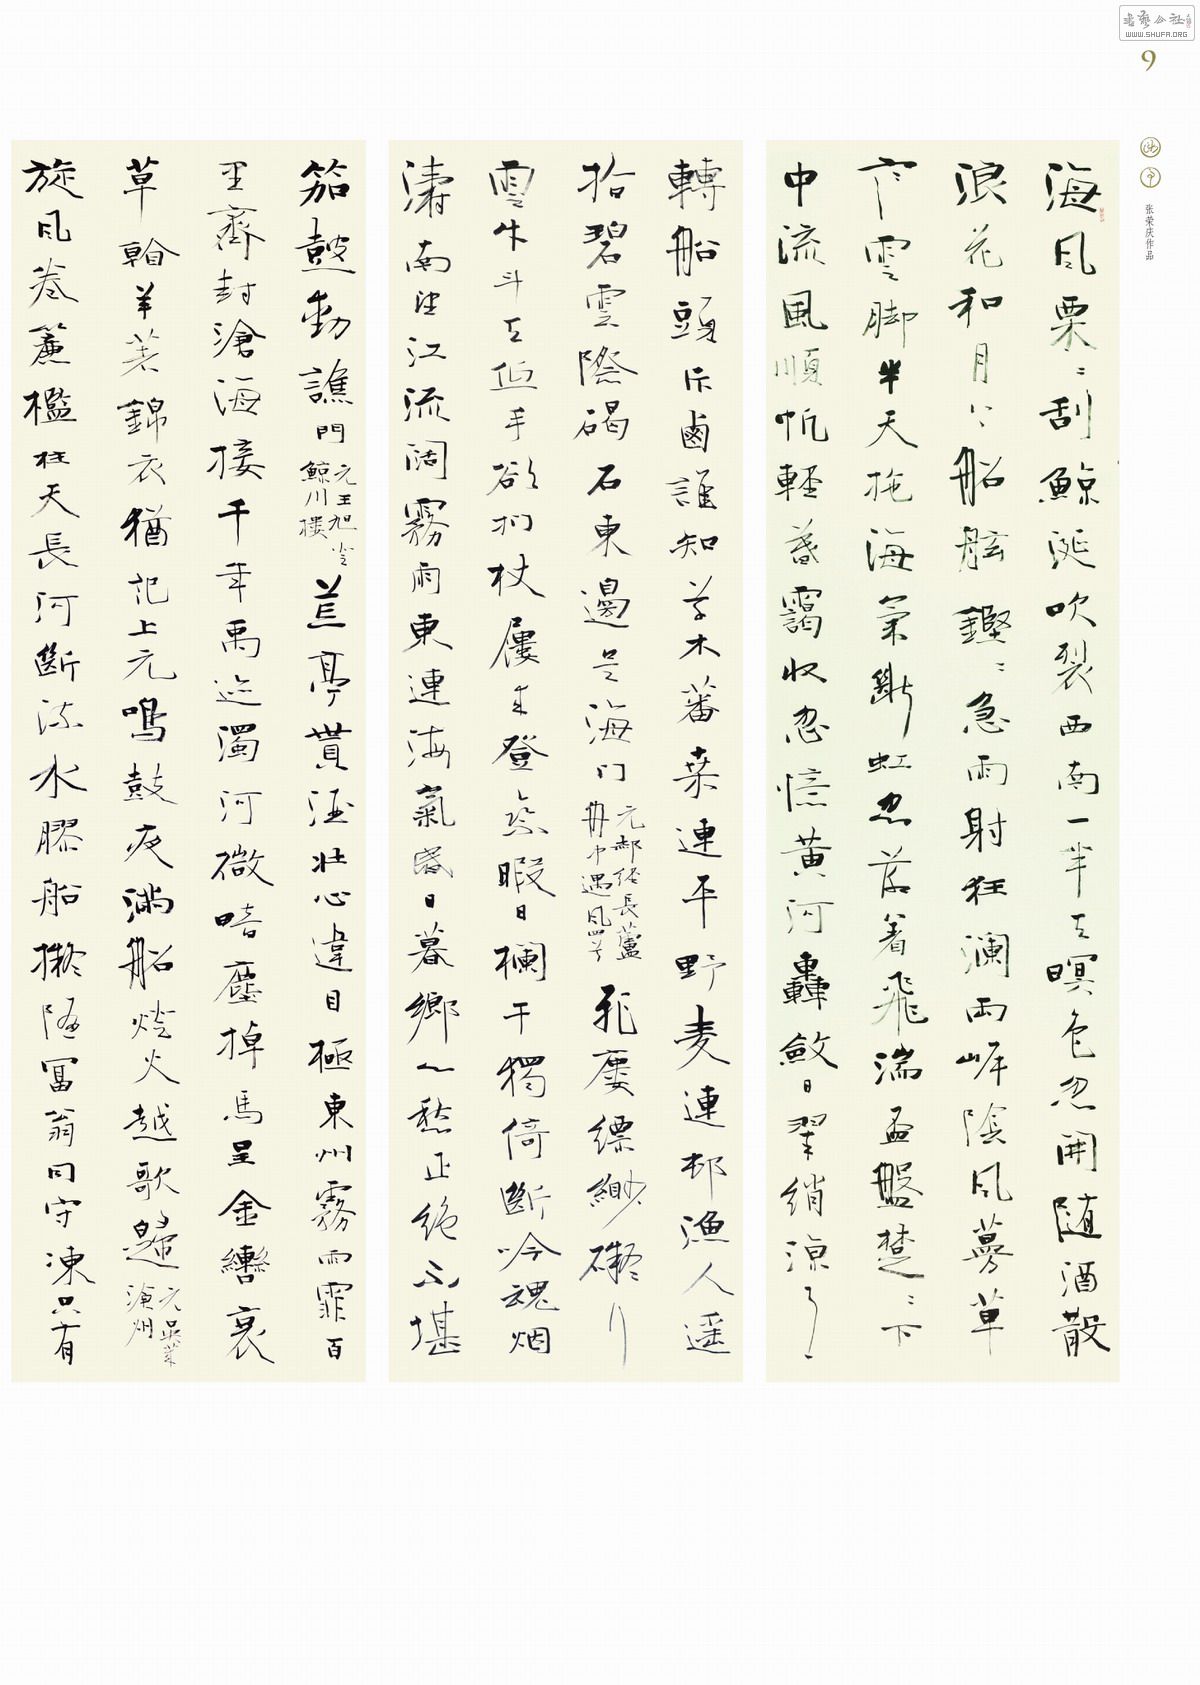 WWW.SHUFA.ORG
9
张荣庆作品
海風栗〻刮鯨涎吹裂西南一半天暝色忽開随酒散
浪花和月上船舷鏗〻急雨射狂瀾兩崖陰風蔓草
寒雲脚半天拖海氣斷虹忽落着飛湍孟盤楚〻下
中流風順帆輕暮靄收忽憶黄河轟斂日翠綃涼
轉船頭斥鹵誰知草木蕃桑連平野麦連邨漁人遥
拾碧雲際碣石東邊是海门
元郝經長蘆
舟中遇風四首
飛廔縹緲礙行
雲牛斗天低手欲捫杖屨来登無暇日欄干獨倚斷吟魂烟
濤南望江流闊霧雨東連海氣昏日暮鄉心愁正絶不堪
笳鼓動譙門
元王旭登
鯨川樓
荒亭貰酒壯心違目極東州霧雨霏百
里齊封滄海接千年禹迹濁河微暗塵掉馬呈金轡哀
草翰羊著錦衣猶記上元鳴鼓夜滿船燈火越歌歸
元吳萊
滄州
旋風卷簾檻柱天長河斷流水膠船擬隨冨翁同守凍只有